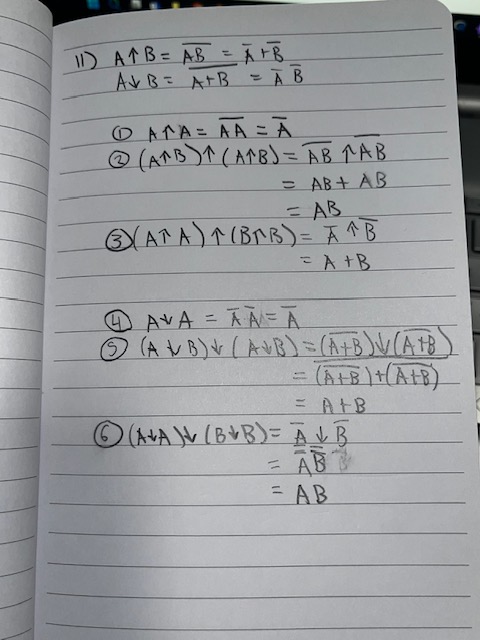 11) A↑B = A̅B̅ = A̅+B̅
A↓B = A̅+̅B̅ = A̅ B̅
① A↑A = A̅A̅ = A̅
② (A↑B)↑(A↑B) = A̅B̅ ↑ A̅B̅
= AB + AB
= AB
③ (A↑A)↑(B↑B) = A̅ ↑ B̅
= A + B
④ A↓A = A̅ A̅ = A̅
⑤ (A↓B)↓(A↓B) = (A̅+̅B̅)↓(A̅+̅B̅)
= (̅A̅̅+̅B̅̅)̅+̅(̅A̅̅+̅B̅̅)̅
= A+B
⑥ (A↓A)↓(B↓B) = A̅ ↓ B̅
= A̿ B̿
= AB